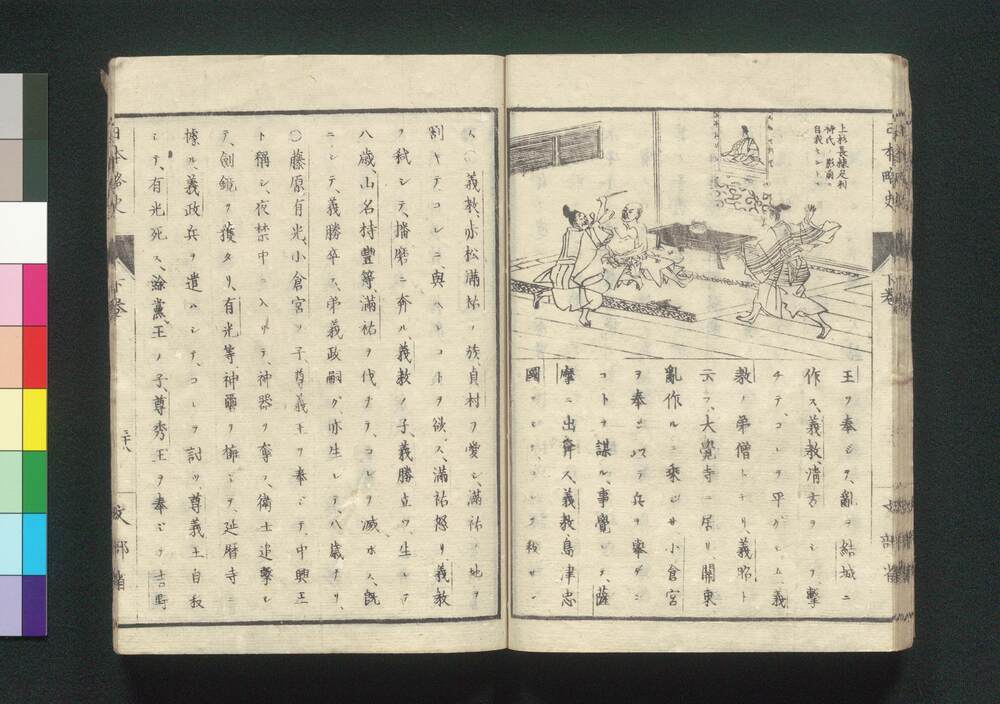 上杉長棟足利
持氏ノ影前ニ
自裁セントス
王ヲ奉シテ、亂ヲ結城ニ
作ス、義教淸方ヲシテ、撃
チテ、コレヲ平ゲシム、義
教ノ弟僧トナリ、義昭ト
云フ、大覺寺ニ居リ、關東
亂作ルニ乘ジ、小倉宮
ヲ奉ジ、以テ兵ヲ擧ゲン
コトヲ謀ル、事覺レテ、薩
摩ニ出奔ス、義教、島津忠
國ヲシテ、コレヲ殺サシ
ム、〇義教、赤松滿祐ノ族、貞村ヲ愛シ、滿祐ノ地ヲ
割キテ、コレニ與ヘンコトヲ欲ス、滿祐怒リ義教
ヲ弑シテ、播磨ニ奔ル、義教ノ子、義勝立ツ、生レテ
八歳、山名持豐等滿祐ヲ伐チテ、コレヲ滅ボス、既
ニシテ、義勝卒ス、弟義政嗣グ、亦生レテ、八歳ナリ、
〇藤原有光、小倉宮ノ子、尊義王ヲ奉ジテ、中興王
ト稱シ、夜禁中ニ入リテ、神器ヲ奪フ、衛士追撃シ
テ、劍鏡ヲ獲タリ、有光等神璽ヲ擁シテ、延暦寺ニ
據ル、義政兵ヲ遣ハシテ、コレヲ討ツ、尊義王自殺
シテ、有光死ス、餘黨、王ノ子、尊秀王ヲ奉ジテ吉野
日本略史
下卷
三十八
文部省